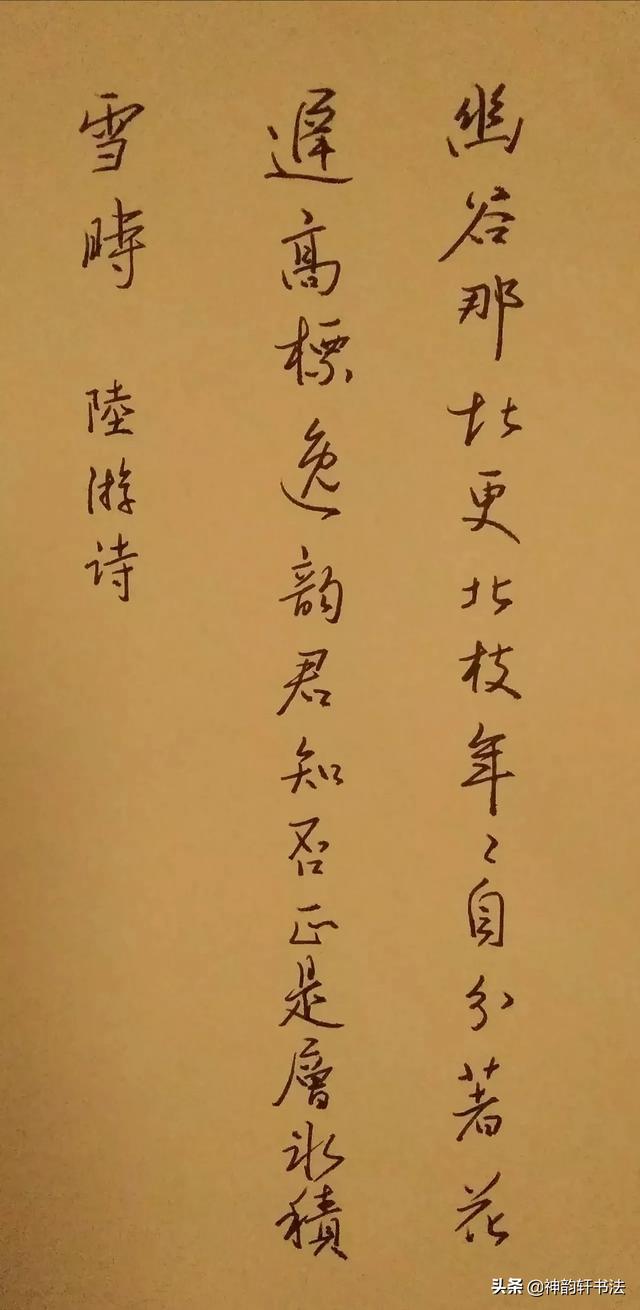 幽谷那堪更北枝年〻自分著花
遲高標逸韻君知否正是層冰積
雪時 陸游诗
头条 @神韵轩书法